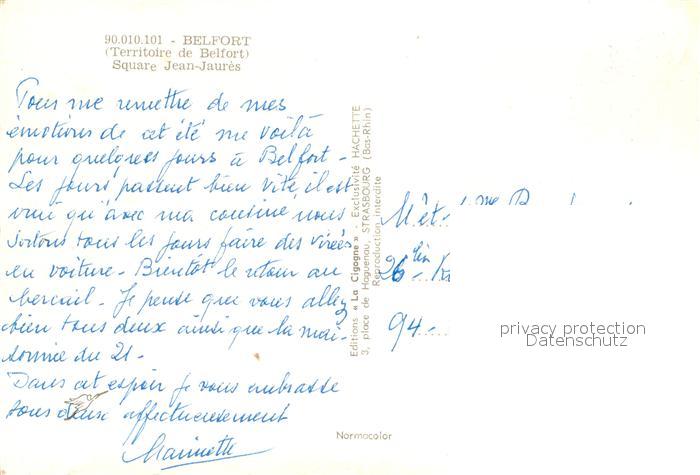 90.010.101 - BELFORT
(Territoire de Belfort)
Square Jean-Jaurès
Pour me remettre de mes
émotions de cet été me voilà
pour quelques jours à Belfort -
Les jours passent bien vite, il est
vrai qu'avec ma cousine nous
sortons tous les jours faire des virées
en voiture - Bientôt le retour au
bercail - Je pense que vous allez
bien tous deux ainsi que la mai-
sonnée du 21 -
Dans cet espoir je vous embrasse
tous deux affectueusement
Editions « La Cigogne » - Exclusivité HACHETTE
3, place de Haguenau, STRASBOURG (Bas-Rhin)
Reproduction interdite
26
94 -
privacy protection
Datenschutz
Normacolor